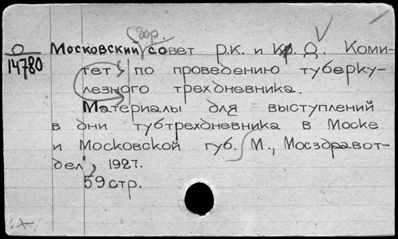 гор.
О Московский совет р.К. и Кр. Д. Коми-
14780 тет по проведению туберку-
лезного трехдневника.
Материалы для выступлений
в дни тубтрехдневника в Москве
и Московской губ. М., Мосздравот-
дел, 1927.
59 стр.